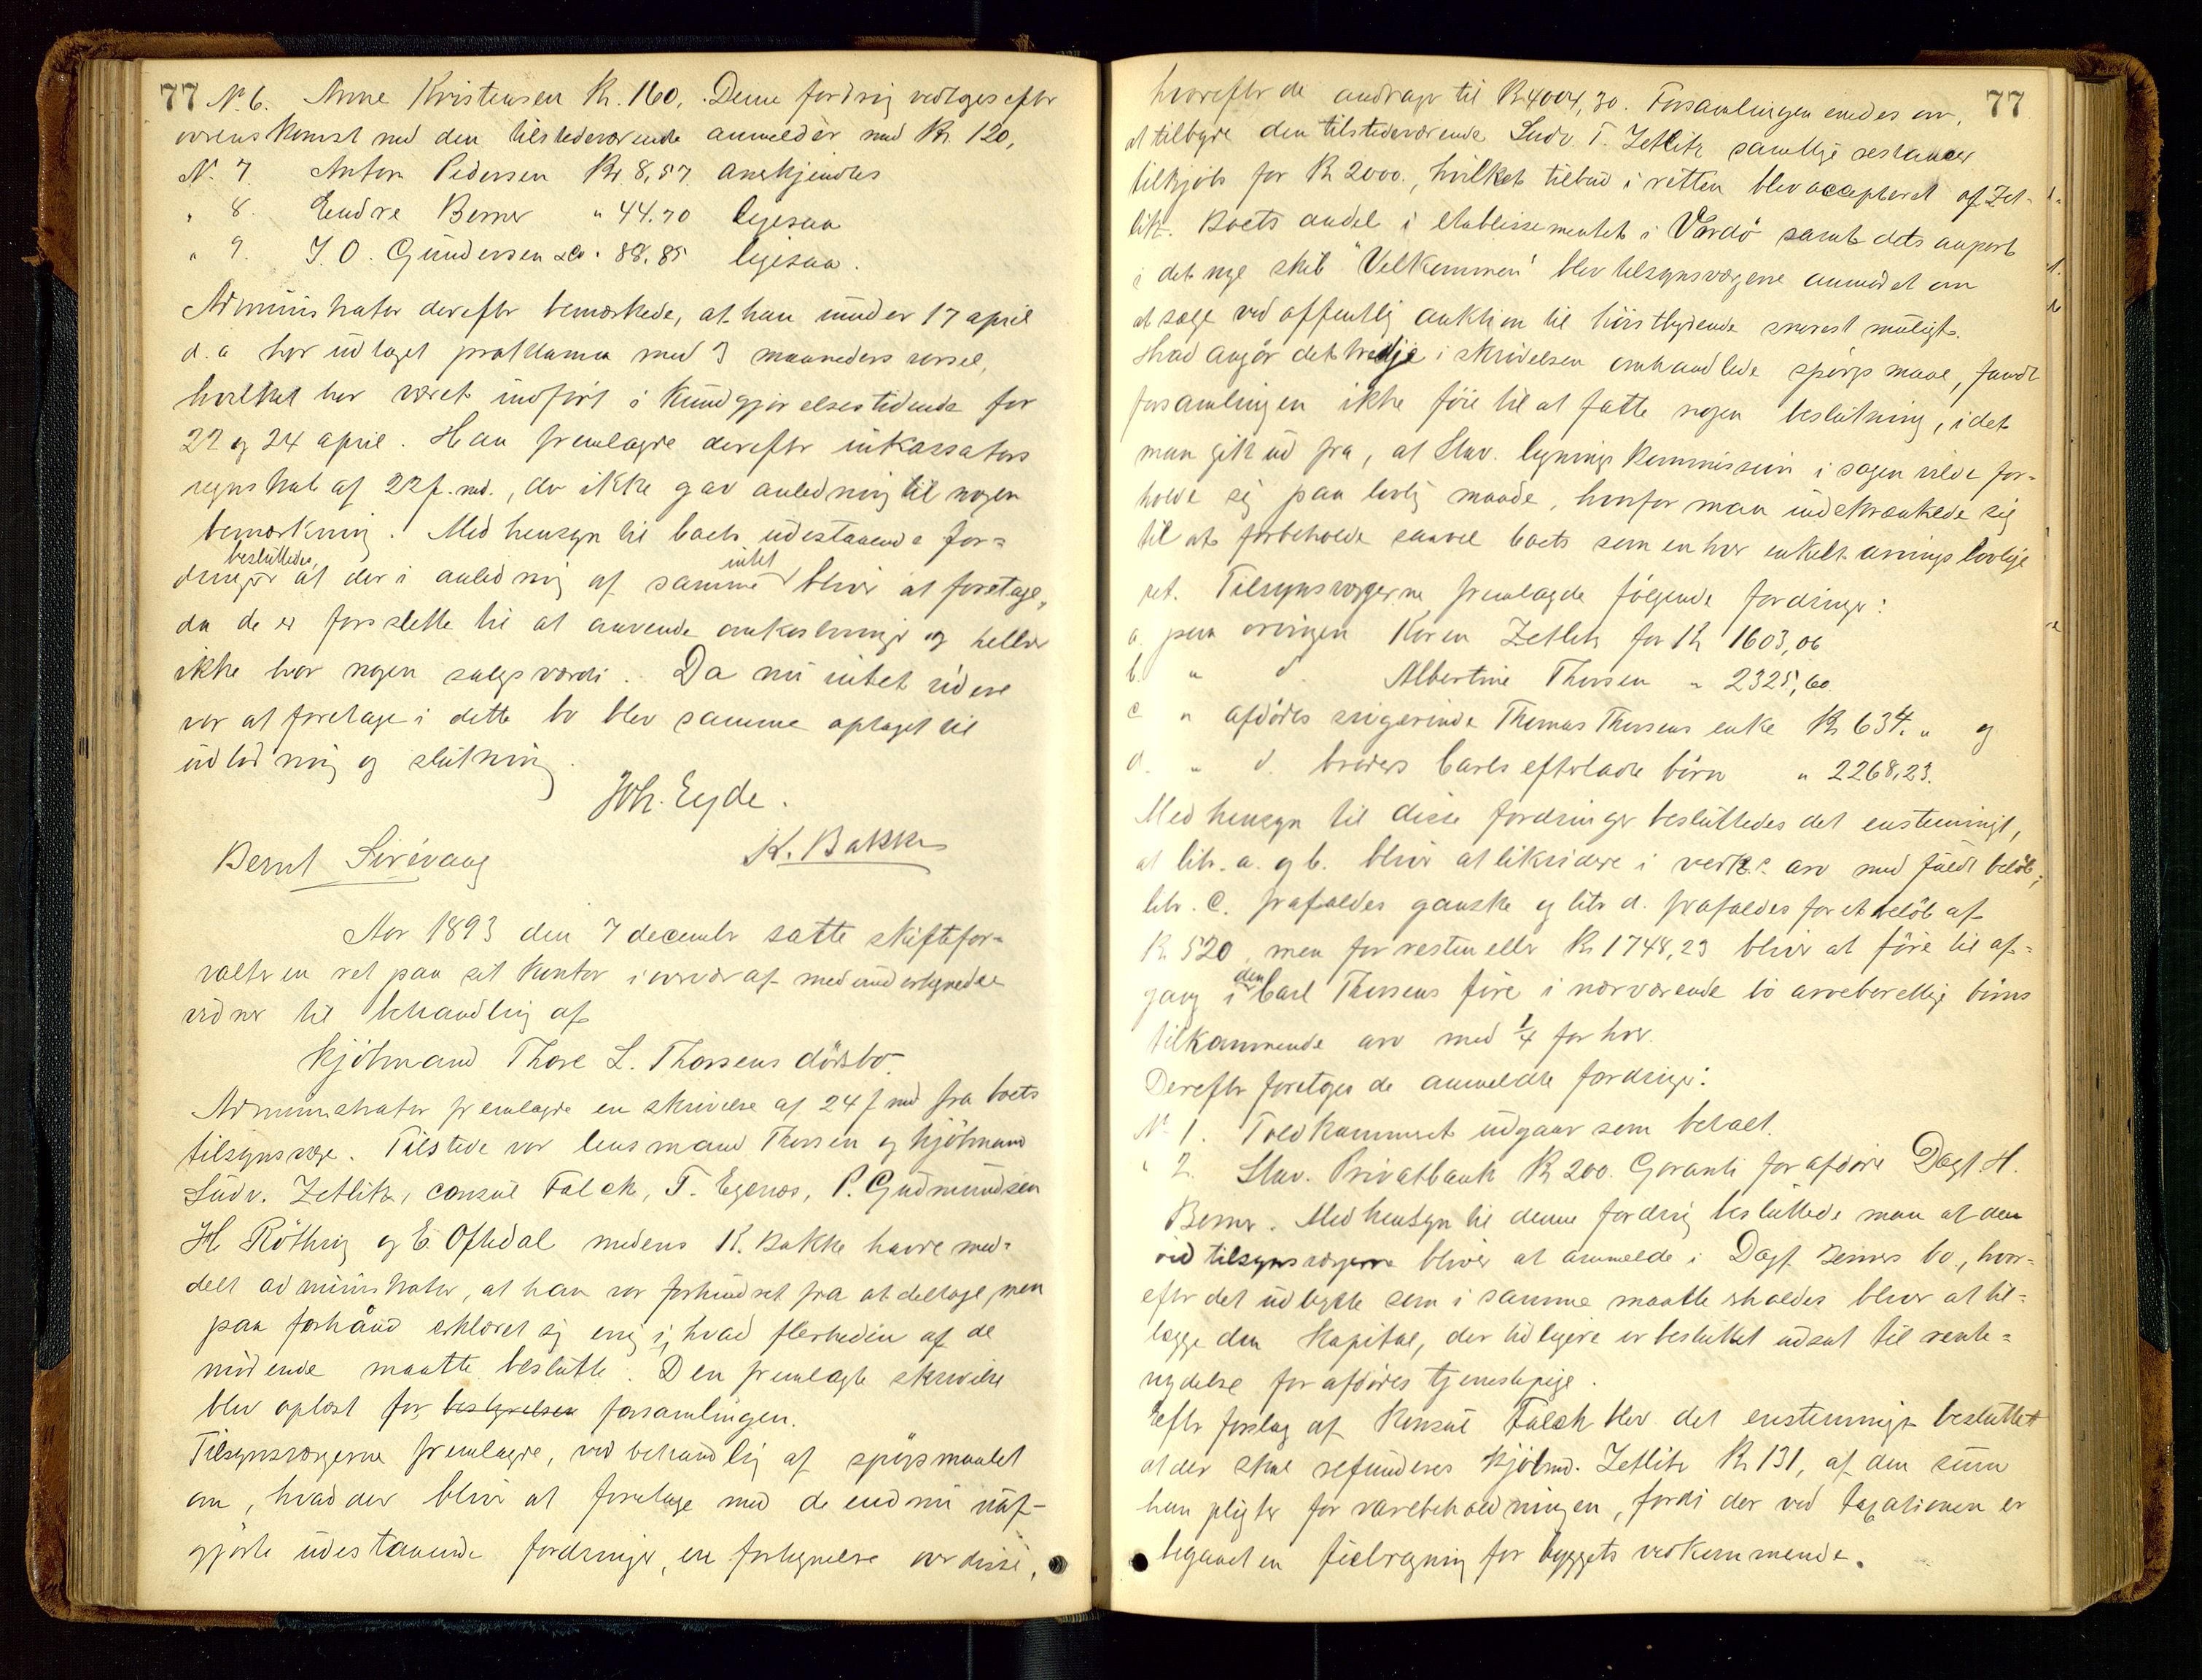 77 N. 6. Anne Kristensen Kr. 160. Denne fordring vedtoges efter
overenskomst med den tilstedeværende anmelder med Kr. 120,
N. 7. Anton Pedersen Kr 8,57 anerkjendtes
" 8. Endre Berner " 44.70 ligesaa
" 9. J. O. Gundersen & Co " 88,85 ligesaa.
Administrator derefter bemærkede, at han under 17 april
d. a har udtaget proklama med 3 maaneders varsel,
hvilket har været indført i Kundgjørelsestidende for
22 og 24 april. Han fremlagde derefter inkassators
regnskab af 22 f. md., der ikke gav anledning til nogen
bemærkning. Med hensyn til boets udestaaende for=
dringer besluttedes, at der i anledning af samme intet bliver at foretage,
da de er for slette til at anvende omkostninger og heller
ikke har nogen salgsværdi. Da nu intet videre
var at foretage i dette bo blev samme optaget til
udlodning og slutning.
Joh. Eyde.
Bernt Sirevaag K. Bakke
Aar 1893 den 7 december satte skiftefor=
valteren ret paa sit kontor i overvær af medundertegnede
vidner til behandling af
kjøbmand Thore L. Thorsens dødsbo.
Administrator fremlagde en skrivelse af 24 f. md fra boets
tilsynsværge. Tilstede var lensmand Thorsen og kjøbmand
Ludv. Zetlitz, consul Falck, T. Egenæs, P. Gudmundsen
H. Röthing og E. Oftedal medens K. Bakke havde med=
delt administrator, at han var forhindret fra at deltage, men
paa forhånd erklæret sig enig i, hvad flerheden af de
mødende maatte beslutte. Den fremlagte skrivelse
blev oplæst for bestyrelsen forsamlingen.
Tilsynsværgerne fremlagde, ved behandling af spørgsmaalet
om, hvad der bliver at foretage med de endnu uaf-
gjorte udestaaende fordringer, en fortegnelse over disse,
77
hvorefter de andrager til Kr 4004,30. Forsamlingen enedes om,
at tilbyde den tilstedeværende Ludv. T. Zetlitz samtlige restancer
tilkjøbs for Kr 2000., hvilket tilbud i retten blev accepteret af Zet-
litz. Boets andel i etablissementet i Vardø samt dets anpart
i det nye skib "Velkommen" blev tilsynsværgerne anmodet om
at sælge ved offentlig auktion til høistbydende snarest muligt.
Hvad angår det tredje i skrivelsen omhandlede spørgsmaal, fandt
forsamlingen ikke føie til at fatte nogen beslutning, idet
man gik ud fra, at Stav. ligningskommission i sagen vilde for=
holde sig paa lovlig maade, hvorfor man indskrænkede sig
til at forbeholde saavel boets som enhver enkelt arvings lovlige
ret. Tilsynsværgerne fremlagde følgende fordringer:
a. paa arvingen Karen Zetlitz for Kr 1603,06
b. " Albertine Thorsen " 2325,60
c " afdødes svigerinde Thomas Thorsens enke Kr 634. " og
d. " d. broders Carls efterladte børn " 2268,23.
Med hensyn til disse fordringer besluttedes det enstemmigt,
at litr. a. og b. bliver at likvidere i vedk.s arv med fuldt beløb;
litr. c. frafaldes ganske og litr d. frafaldes for et beløb af
Kr. 520, men for resten eller Kr 1748,23 bliver at føre til af=
gang i den Carl Thorsens fire i nærværende bo arveberettige børns
tilkommende arv med 1/4 for hver.
Derefter foretoges de anmeldte fordringer:
N. 1. Toldkammeret udgaar som betalt.
" 2. Stav. Privatbank Kr 200. Garanti for afdøde Dagf. H.
Berner. Med hensyn til denne fordring besluttede man at den
ved tilsynsværgerne bliver at anmelde i Dagf. Berners bo, hvor=
efter det udbytte som i samme maatte erholdes bliver at til=
lægge den Kapital, der tidligere er besluttet udsat til rente=
nydelse for afdødes tjenestepige.
Efter forslag af Konsul Falck blev det enstemmigt besluttet
at der skal refunderes kjøbmd. Zetlitz Kr 131, af den sum
han pligter for varebeholdningen, fordi der ved taxationen er
begaaet en feilregning for byggets vedkommende.